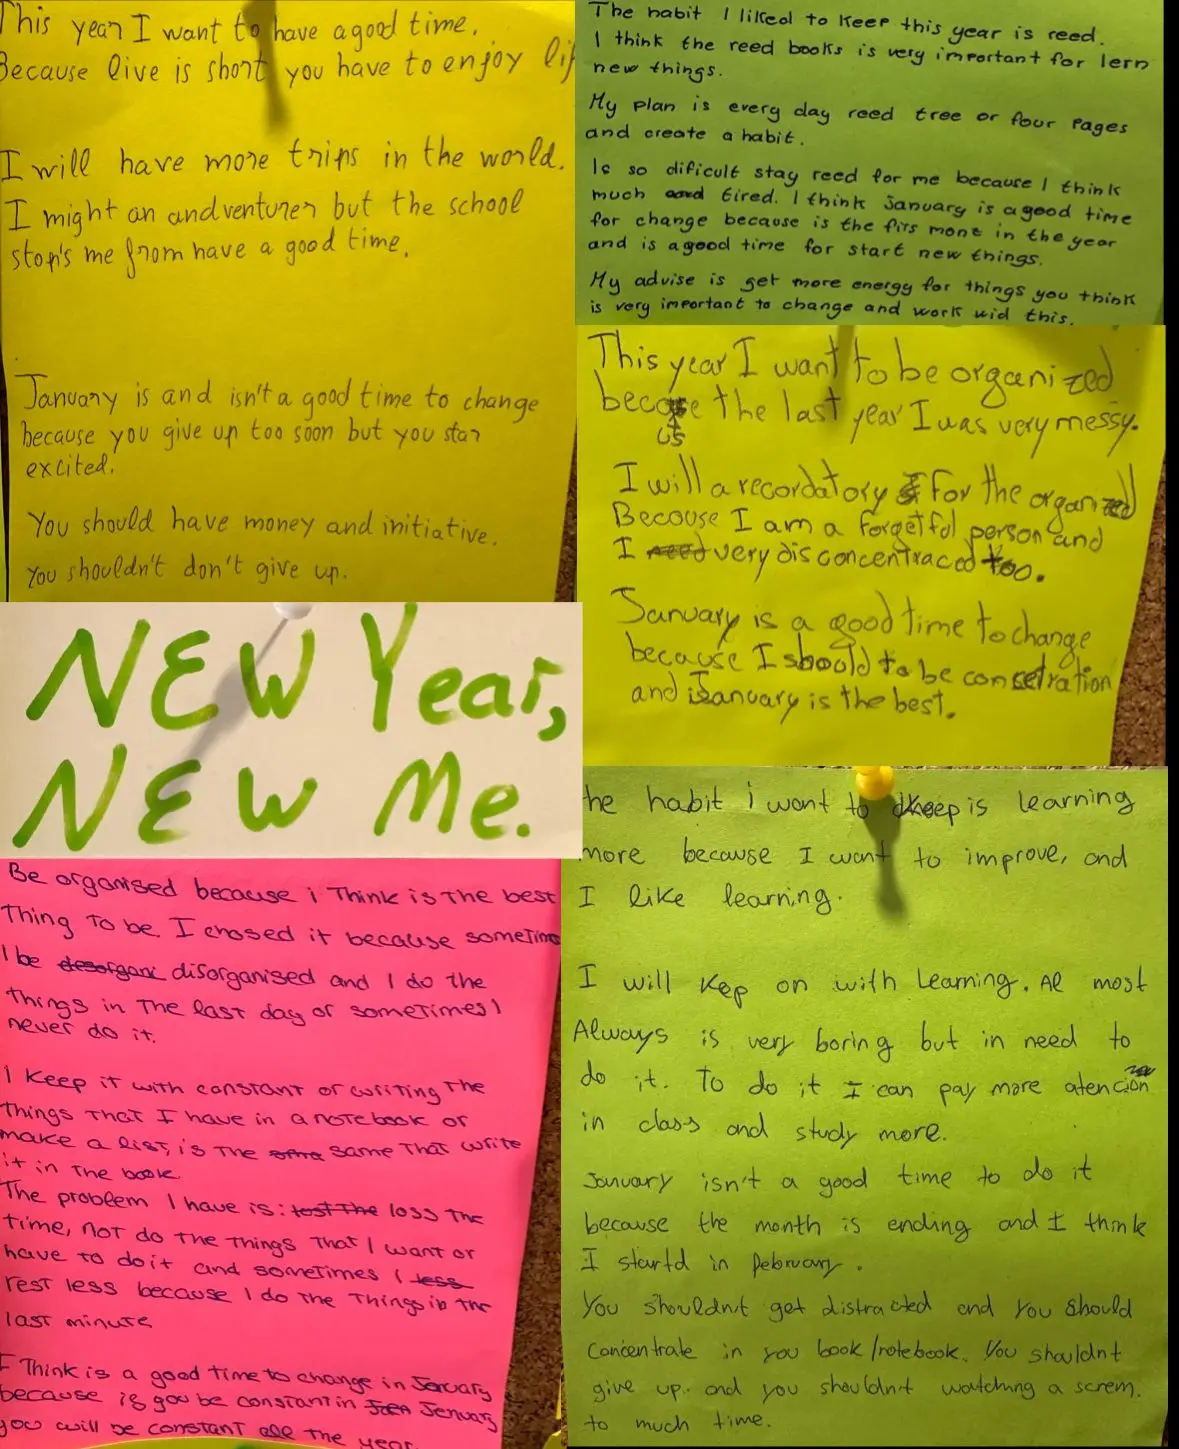 This year I want to have a good time.
Because live is short you have to enjoy lif
I will have more trips in the world.
I might an andventurer but the school
stop's me from have a good time.
January is and isn't a good time to change
because you give up too soon but you star
excited.
You should have money and initiative.
You shouldn't don't give up.
The habit I liked to keep this year is reed.
I think the reed books is very important for lern
new things.
My plan is every day reed tree or four pages
and create a habit.
Is so dificult stay reed for me because I think
much and tired. I think january is a good time
for change because is the firs mont in the year
and is a good time for start new things.
My advise is get more energy for things you think
is very important to change and work wid this.
This year I want to be organized
because the last year I was very messy.
I will a recordatory for the organized
Becouse I am a forgetful person and
I need very disconcentraced too.
January is a good time to change
because I should to be concetration
and January is the best.
NEW Year,
NEW Me.
Be organised because i Think is The best
Thing To be. I chosed it because someTime
I be desorgani disorganised and I do the
Things in The last day or someTimes I
never do it.
I keep it with constant or writing The
Things That I have in a notebook or
make a list, is The same That write
it in The book.
The problem I have is: lost The loss The
time, not do The Things That I want or
have to do it and someTimes I less
rest less because I do The Things in The
last minute
I Think is a good Time to change in January
because if you be constant in Jenuary
you will be constant all The year.
he habit i want to keep is learning
more because I want to improve, and
I like learning.
I will kep on with learning. Al most
Always is very boring but in need to
do it. To do it I can pay more atención
in class and study more.
January isn't a good time to do it
because the month is ending and I think
I startd in february.
You shouldn't get distracted and you should
concentrate in you book/notebook. You shouldnt
give up. and you shouldn't watching a screm.
to much time.